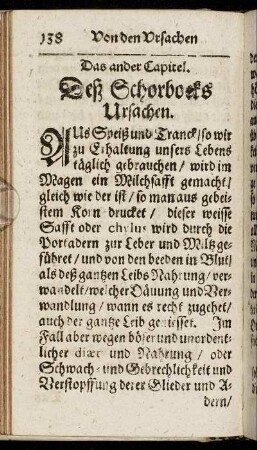 138 Von den Vrsachen
Das ander Capitel.
Deß Schorbocks
Ursachen.
AUs Speiß und Tranck/ so wir
zu Erhaltung unsers Lebens
täglich gebrauchen/ wird im
Magen ein Milchsafft gemacht/
gleich wie der ist/ so man aus gebei-
stem Korn drucket/ dieser weisse
Safft oder chylus wird durch die
Portadern zur Leber und Miltz ge-
führet/ und von den beeden in Blut/
als deß gantzen Leibs Nahrung/ ver-
wandelt/ welcher Däuung und Ver-
wandlung/ wann es recht zugehet/
auch der gantze Leib geniesset. Im
Fall aber wegen böser und unordent-
licher diæt und Nahrung/ oder
Schwach- und Gebrechlichkeit und
Verstopffung derer Glieder und A-
dern/